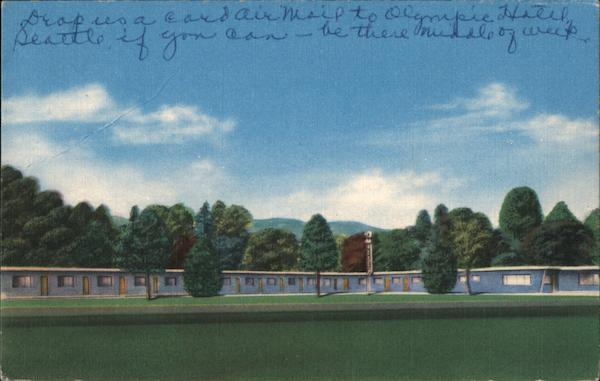 Drop us a card Air Mail to Olympic Hotel,
Seattle, if you can - be there middle of week.